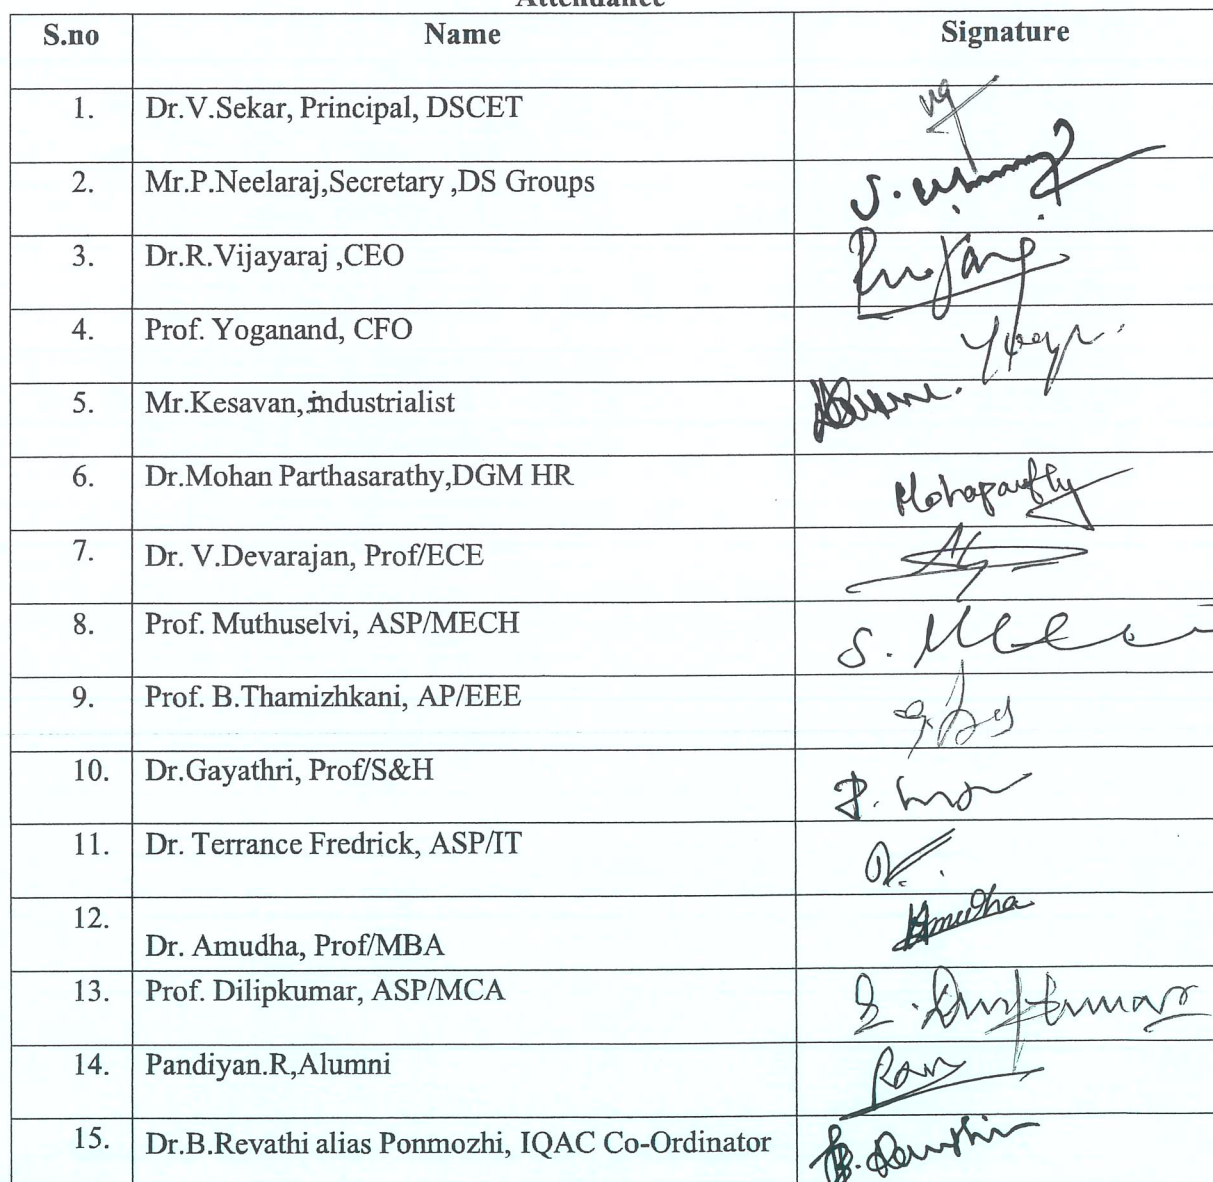 Attendance
S.no Name Signature
1. Dr.V.Sekar, Principal, DSCET
2. Mr.P.Neelaraj,Secretary ,DS Groups
3. Dr.R.Vijayaraj ,CEO
4. Prof. Yoganand, CFO
5. Mr.Kesavan,industrialist
6. Dr.Mohan Parthasarathy,DGM HR
7. Dr. V.Devarajan, Prof/ECE
8. Prof. Muthuselvi, ASP/MECH S.
9. Prof. B.Thamizhkani, AP/EEE
10. Dr.Gayathri, Prof/S&H
11. Dr. Terrance Fredrick, ASP/IT
12. Dr. Amudha, Prof/MBA Amudha
13. Prof. Dilipkumar, ASP/MCA
14. Pandiyan.R,Alumni
15. Dr.B.Revathi alias Ponmozhi, IQAC Co-Ordinator